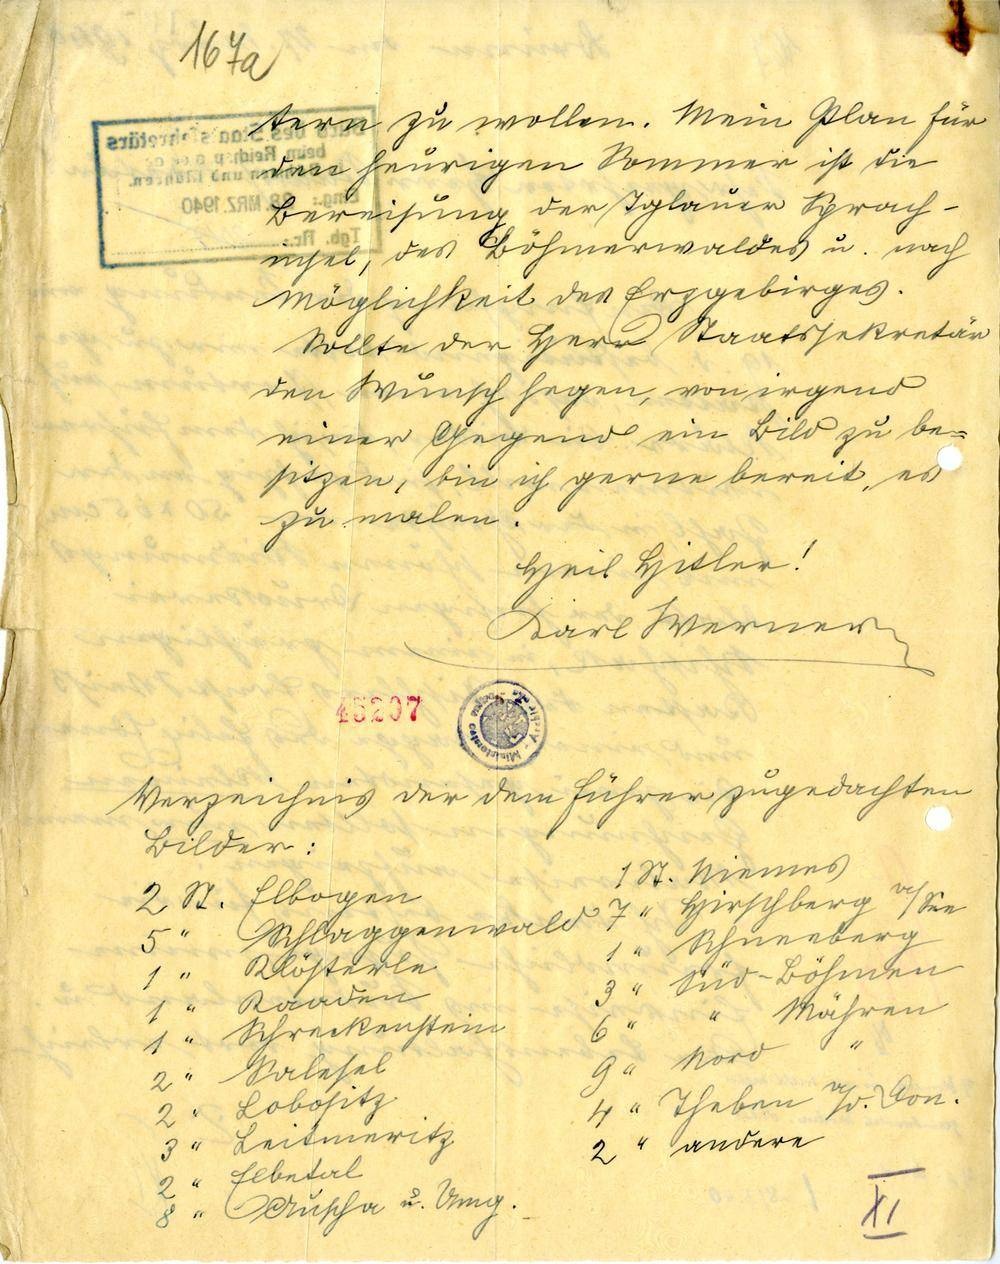 167a
tern zu wollen. Mein Plan für
den heurigen Sommer ist die
Bereisung der Iglauer Sprach-
insel, des Böhmerwaldes u. nach
Möglichkeit des Erzgebirges.
Sollte der Herr Staatssekretär
den Wunsch hegen, von irgend
einer Gegend ein Bild zu be=
sitzen, bin ich gerne bereit, es
zu malen.
Heil Hitler!
Karl Werner
45207
Verzeichnis der dem Führer zugedachten
Bilder:
2 St. Elbogen
5 " Schlaggenwald
1 " Klösterle
1 " Kaaden
1 " Schreckenstein
2 " Salesel
2 " Lobositz
3 " Leitmeritz
2 " Elbetal
8 " Auscha u. Umg.
1 St. Niemes
7 " Hirschberg a/See
1 " Schneeberg
3 " Süd-Böhmen
6 " " Mähren
9 " Nord "
4 " Theben a/d. Don.
2 " andere
XI